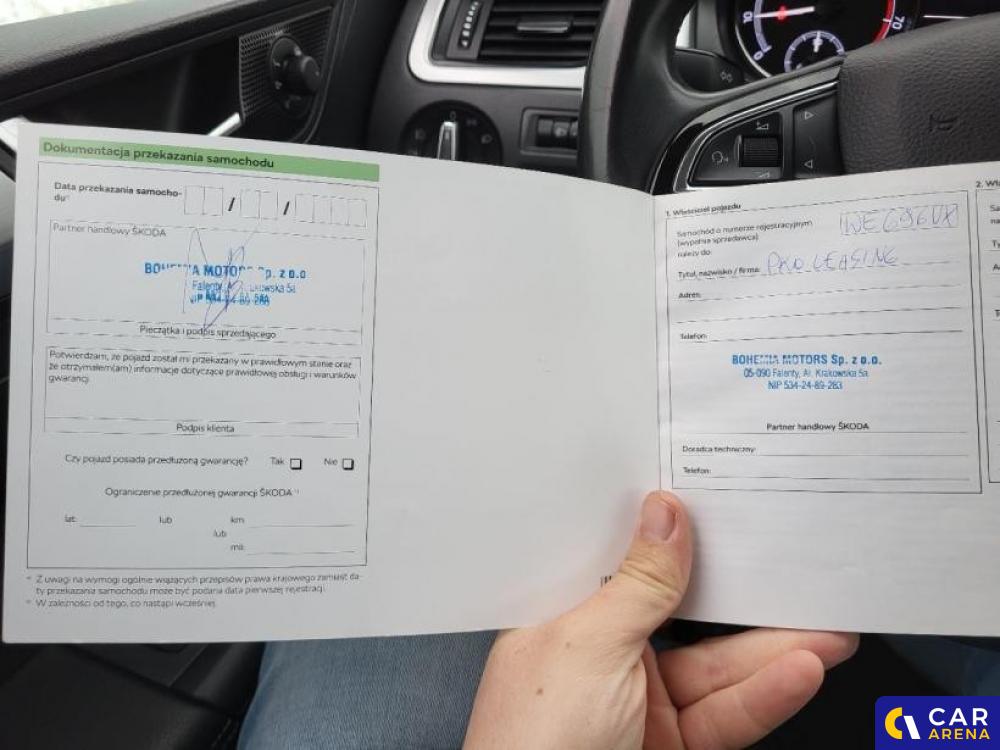 Dokumentacja przekazania samochodu
Data przekazania samocho-
du*⁾
/ /
Partner handlowy ŠKODA
BOHEMIA MOTORS Sp. z o.o
Falenty, Al. Krakowska 5a
NIP 534-24-89-283
Pieczątka i podpis sprzedającego
Potwierdzam, że pojazd został mi przekazany w prawidłowym stanie oraz
że otrzymałem(am) informacje dotyczące prawidłowej obsługi i warunków
gwarancji.
Podpis klienta
Czy pojazd posiada przedłużoną gwarancję? Tak Nie
Ograniczenie przedłużonej gwarancji ŠKODA
lat: lub km
lub
mil:
Z uwagi na wymogi ogólnie wiążących przepisów prawa krajowego zamiast da-
ty przekazania samochodu może być podana data pierwszej rejestracji.
W zależności od tego, co nastąpi wcześniej.
1. Właściciel pojazdu
Samochód o numerze rejestracyjnym
(wypełnia sprzedawca)
należy do:
Tytuł, nazwisko / firma: PKO LEASING
Adres:
Telefon:
BOHEMIA MOTORS Sp. z o.o.
05-090 Falenty, Al. Krakowska 5a
NIP 534-24-89-283
Partner handlowy ŠKODA
Doradca techniczny:
Telefon:
2.
70
CAR
ARENA